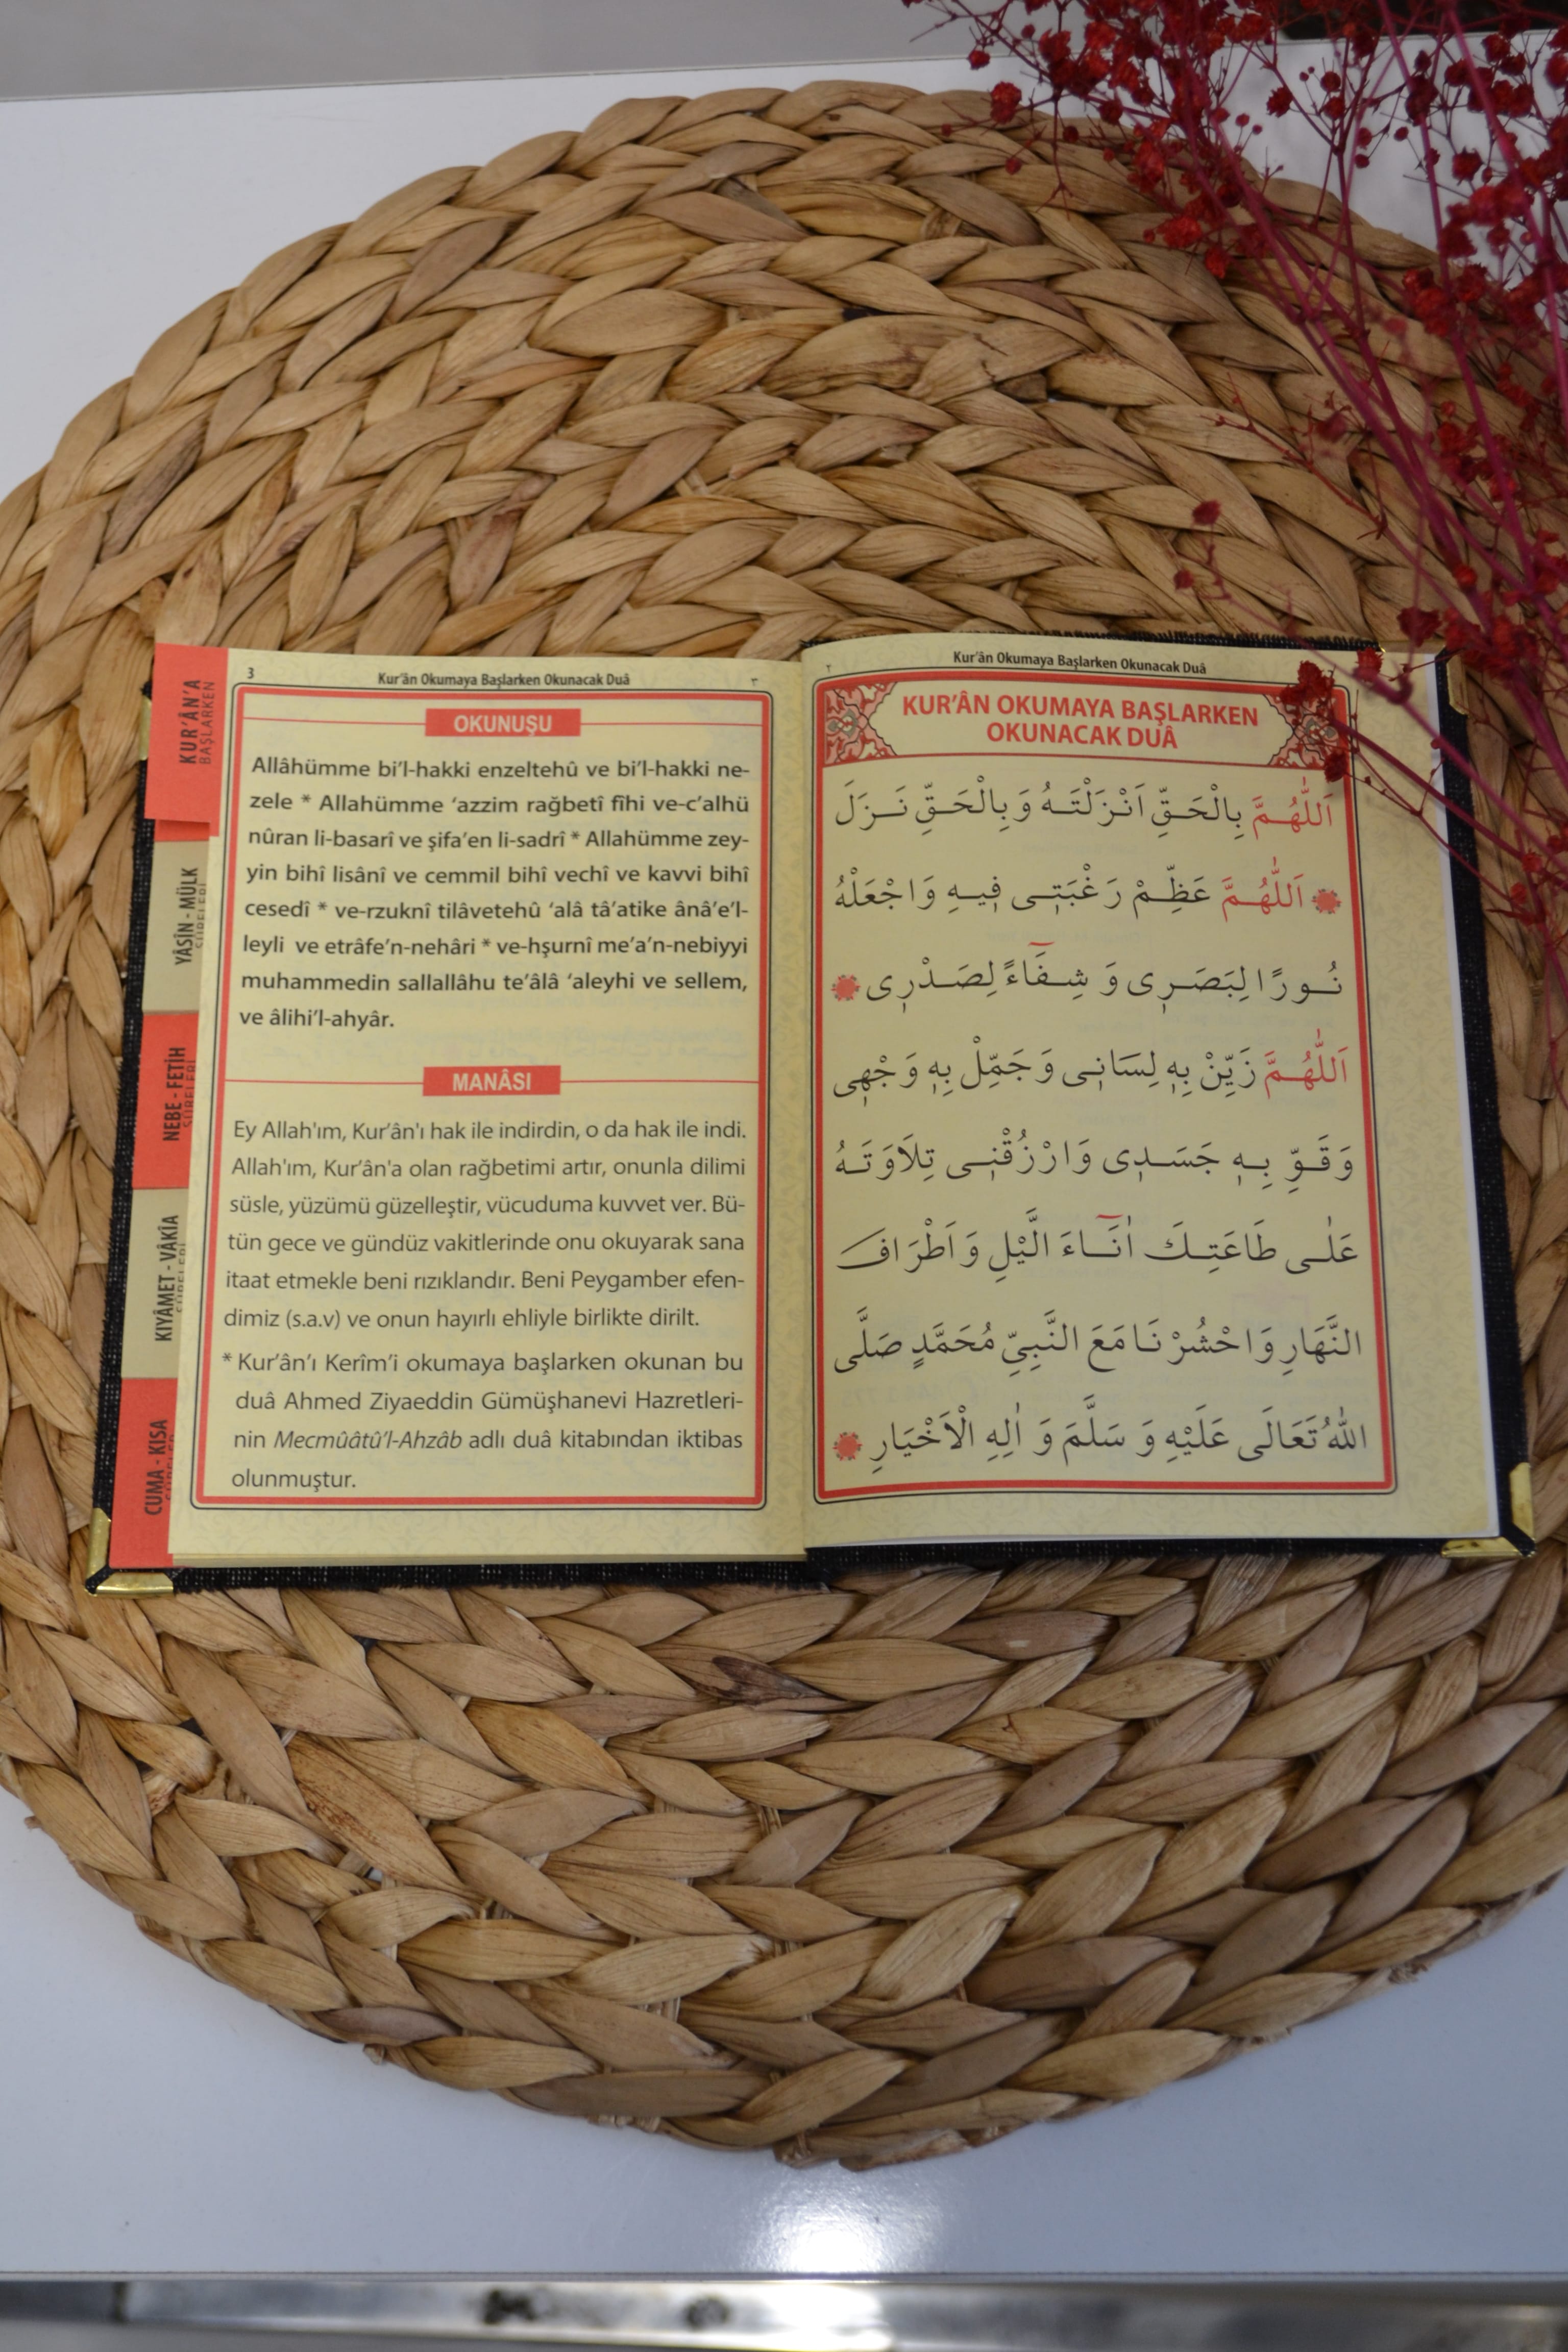 Kur'ân Okumaya Başlarken Okunacak Duâ
٢
KUR'ÂN OKUMAYA BAŞLARKEN
OKUNACAK DUÂ
اَللّٰهُمَّ بِالْحَقِّ اَنْزَلْتَهُ وَبِالْحَقِّ نَزَلَ
اَللّٰهُمَّ عَظِّمْ رَغْبَتٖى فٖيهِ وَاجْعَلْهُ
نُورًا لِبَصَرٖى وَ شِفَٓاءً لِصَدْرٖى
اَللّٰهُمَّ زَيِّنْ بِهٖ لِسَانٖى وَجَمِّلْ بِهٖ وَجْهٖى
وَقَوِّ بِهٖ جَسَدٖى وَارْزُقْنٖى تِلَاوَتَهُ
عَلٰى طَاعَتِكَ اٰنَٓاءَ الَّيْلِ وَاَطْرَافَ
النَّهَارِ وَاحْشُرْنَا مَعَ النَّبِيِّ مُحَمَّدٍ صَلَّى
اللّٰهُ تَعَالَى عَلَيْهِ وَ سَلَّمَ وَ اٰلِهِ الْاَخْيَارِ
3
Kur'ân Okumaya Başlarken Okunacak Duâ
٣
OKUNUŞU
Allâhümme bi'l-hakki enzeltehû ve bi'l-hakki ne-
zele * Allahümme 'azzim rağbetî fîhi ve-c'alhü
nûran li-basarî ve şifa'en li-sadrî * Allahümme zey-
yin bihî lisânî ve cemmil bihî vechî ve kavvi bihî
cesedî * ve-rzuknî tilâvetehû 'alâ tâ'atike ânâ'e'l-
leyli ve etrâfe'n-nehâri * ve-hşurnî me'a'n-nebiyyi
muhammedin sallallâhu te'âlâ 'aleyhi ve sellem,
ve âlihi'l-ahyâr.
MANÂSI
Ey Allah'ım, Kur'ân'ı hak ile indirdin, o da hak ile indi.
Allah'ım, Kur'ân'a olan rağbetimi artır, onunla dilimi
süsle, yüzümü güzelleştir, vücuduma kuvvet ver. Bü-
tün gece ve gündüz vakitlerinde onu okuyarak sana
itaat etmekle beni rızıklandır. Beni Peygamber efen-
dimiz (s.a.v) ve onun hayırlı ehliyle birlikte dirilt.
* Kur'ân'ı Kerîm'i okumaya başlarken okunan bu
duâ Ahmed Ziyaeddin Gümüşhanevi Hazretleri-
nin Mecmûâtû'l-Ahzâb adlı duâ kitabından iktibas
olunmuştur.
KUR'ÂN'A
BAŞLARKEN
YÂSÎN - MÜLK
NEBE - FETİH
SÛRELERİ
KIYÂMET - VÂKIA
CUMA - KISA